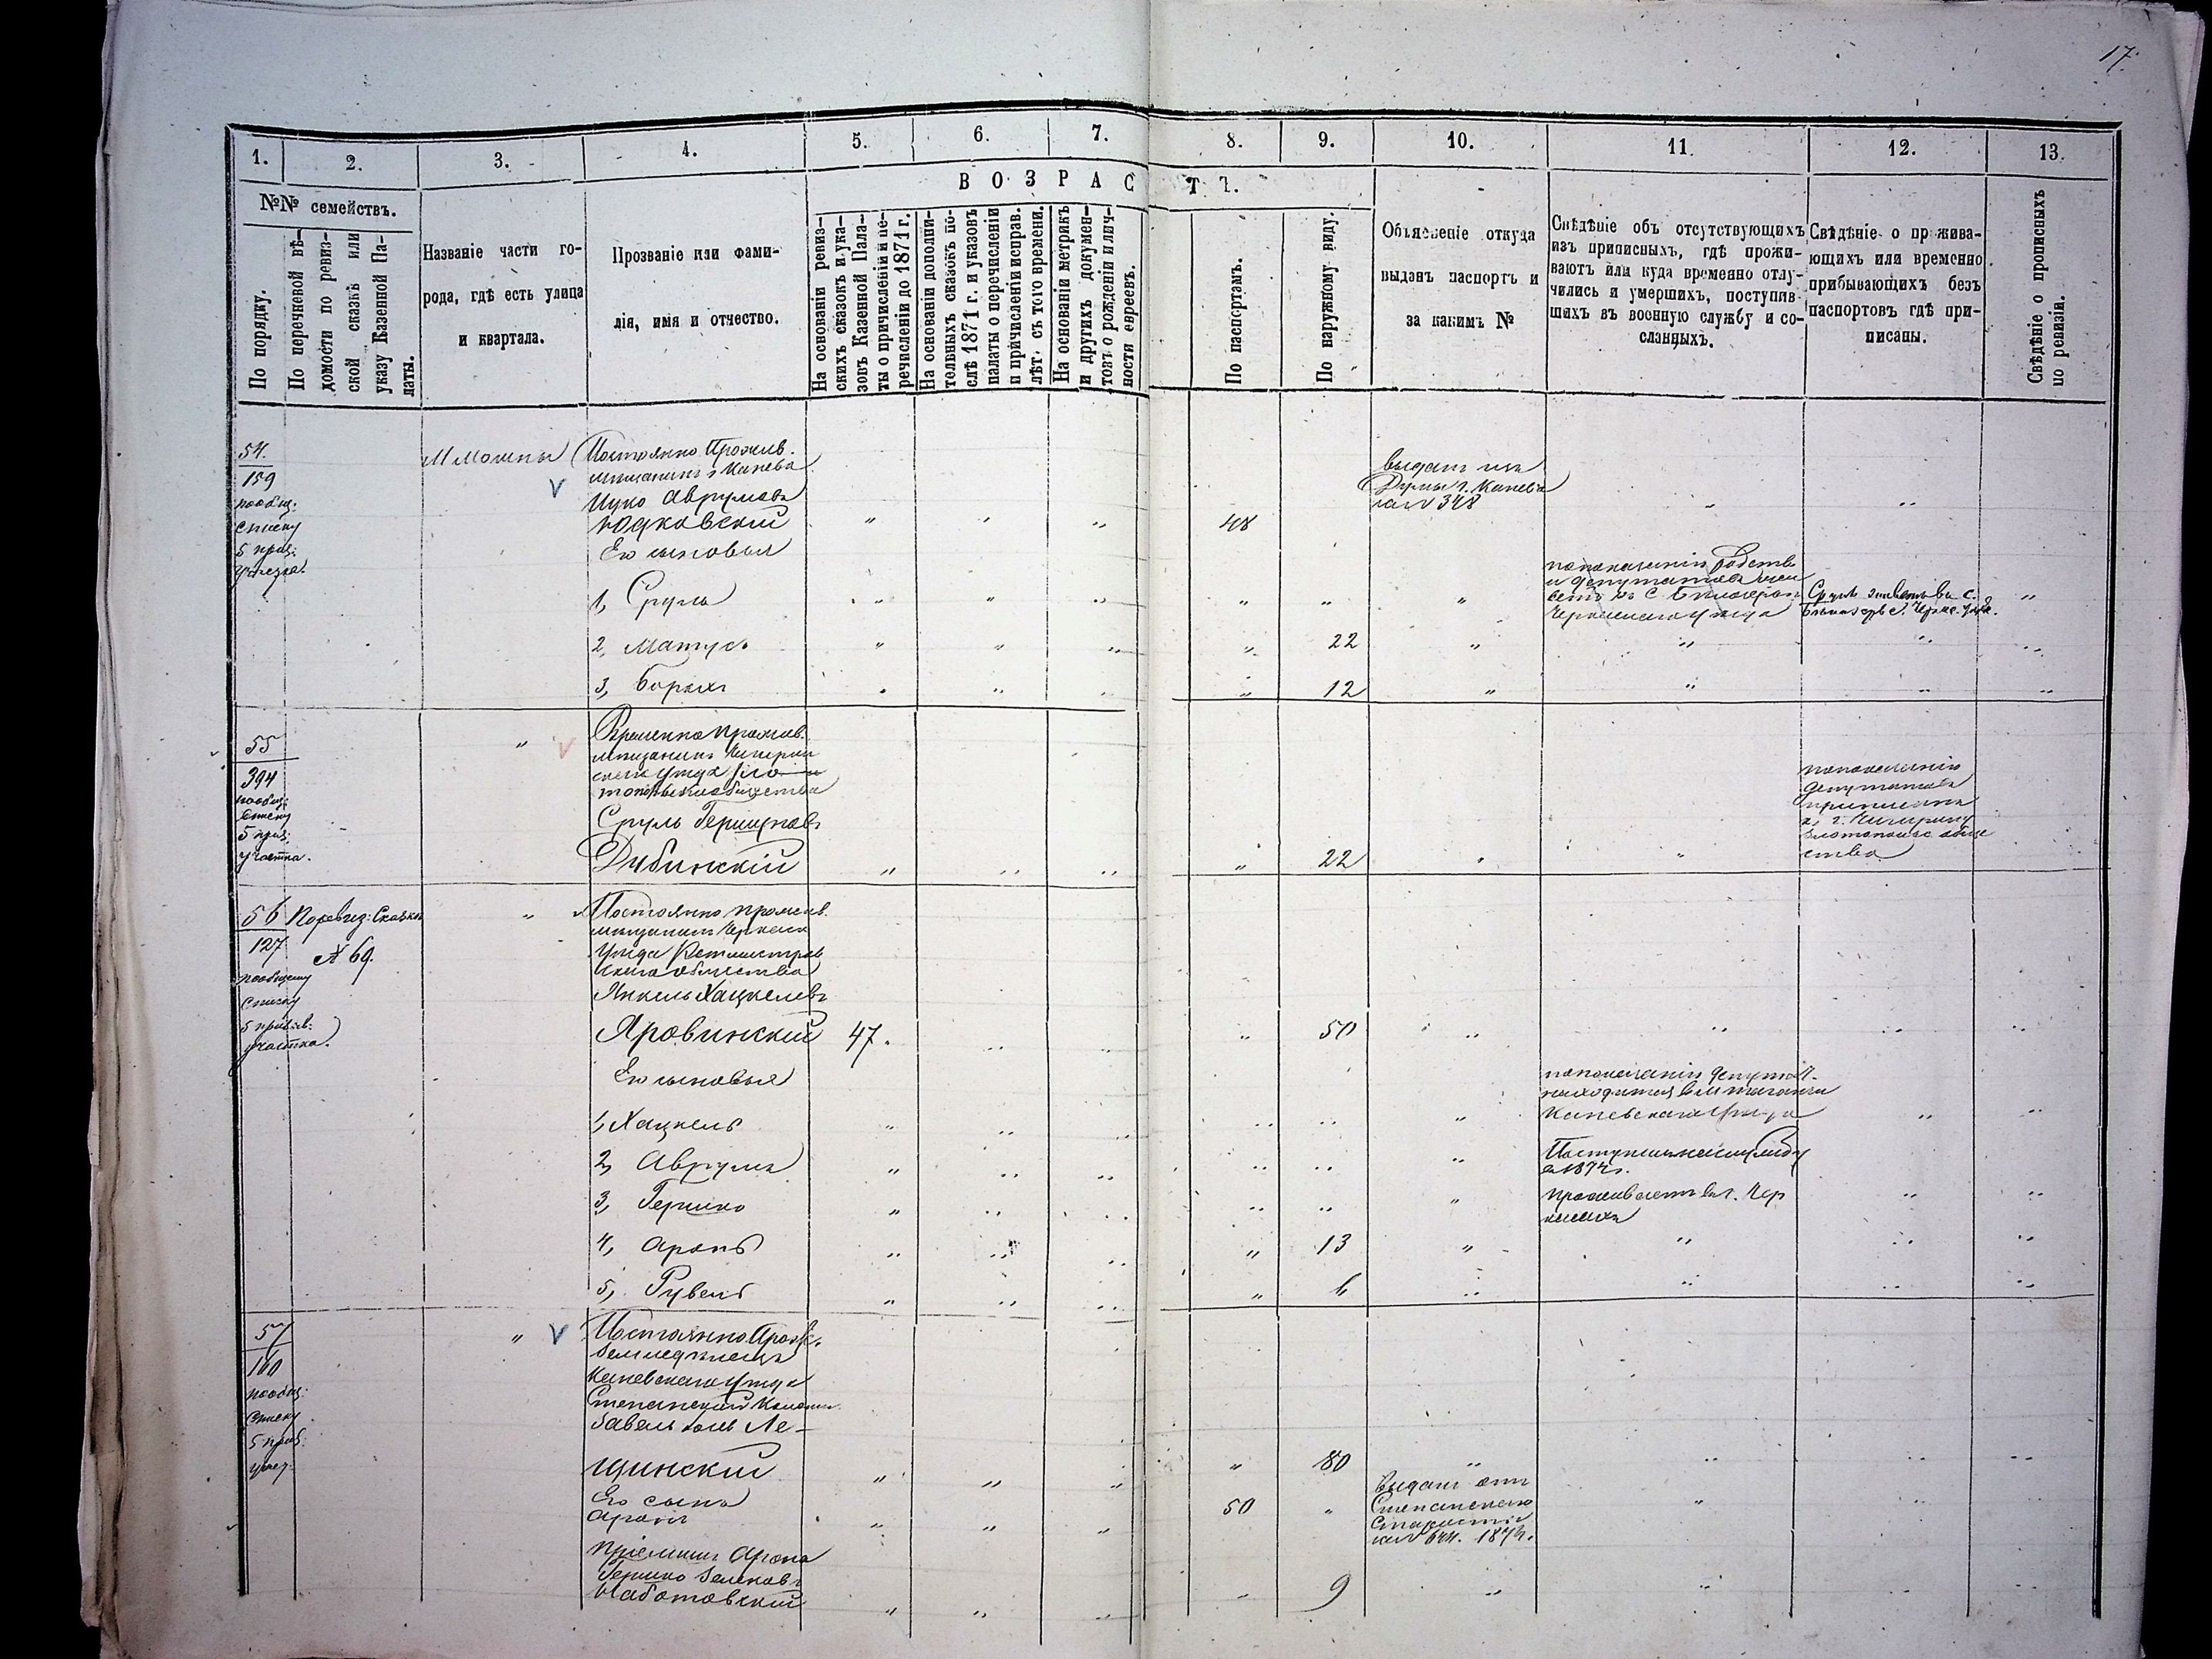 17.
1. 2. 3. 4. 5. 6. 7. 8. 9. 10. 11. 12. 13.
№№ семействъ.
В О З Р А С Т Ъ.
По порядку.
По перечневой вѣ-
домости по ревиз-
ской сказкѣ или
указу Казенной Па-
латы.
Названіе части го-
рода, гдѣ есть улица
и квартала.
Прозваніе или фами-
лія, имя и отчество.
На основаніи ревиз-
скихъ сказокъ и ука-
зовъ Казенной Пала-
ты о причисленій и пе-
речисленіи до 1871 г.
На основаніи дополни-
тельныхъ сказокъ по-
слѣ 1871 г. и указовъ
палаты о перечисленіи
и причисленіи исправ.
лѣт. съ того времени.
На основаніи метрикъ
и другихъ докумен-
товъ о рожденіи и лич-
ности евреевъ.
По паспортамъ.
По наружному виду.
Объясненіе откуда
выданъ паспортъ и
за какимъ №
Свѣдѣніе объ отсутствующихъ
изъ приписныхъ, гдѣ прожи-
ваютъ или куда временно отлу-
чились и умершихъ, поступив-
шихъ въ военную службу и со-
сланныхъ.
Свѣдѣніе о прожива-
ющихъ или временно
прибывающихъ безъ
паспортовъ гдѣ при-
писаны.
Свѣдѣніе о прописныхъ
по ревизіи.
54.
159
пообщ.
списку
5 приз.
М Мошны
Постоянно Прожив.
мѣщанинъ г. Канева
Ицко Аврумовъ
Юдковскій
48
выданъ изъ
Думы г. Канева
за № 348
Его сыновья
1, Сруль
и депутатовъ
Сруль живетъ въ с.
2, Матус. 22
3, Борохъ 12
55
394
пообщ:
списку
5 приз:
участка.
Временно прожив.
мѣщанинъ Чигирин
скаго уезда
общества
Сруль Гершковъ
Дубинскій
22
по показанію
депутатовъ
приписанъ
къ г. Чигирину
обще
ства
56
127
пообщему
списку
5 призыв:
участка.
По ревиз: Сказки
№ 69.
Постоянно прожив.
мѣщанинъ Черкаск
Уезда
скаго общества
Янкель Хацкелевъ
Яровинскій 47. 50
Его сыновья
1, Хацкель
по показанію депутат.
находится въ м
Каневскаго уезда
2, Аврумъ
Поступилъ на службу
въ 1874 г.
3, Гершко
проживаетъ въ г. Чер
касахъ
4, Аронъ 13
5, Рувенъ 6
57
160
пообщ:
списку
5 приз:
учас.
Постоянно Прож.
земледѣлецъ
Каневскаго уезда
Степанецкой Колоніи
Ле-
щинскій 80
Его сынъ
Аронъ
50
выданъ отъ
Степанецкаго
1874.
пріемышъ Арона
Гершко Зельковъ
Наботовскій 9